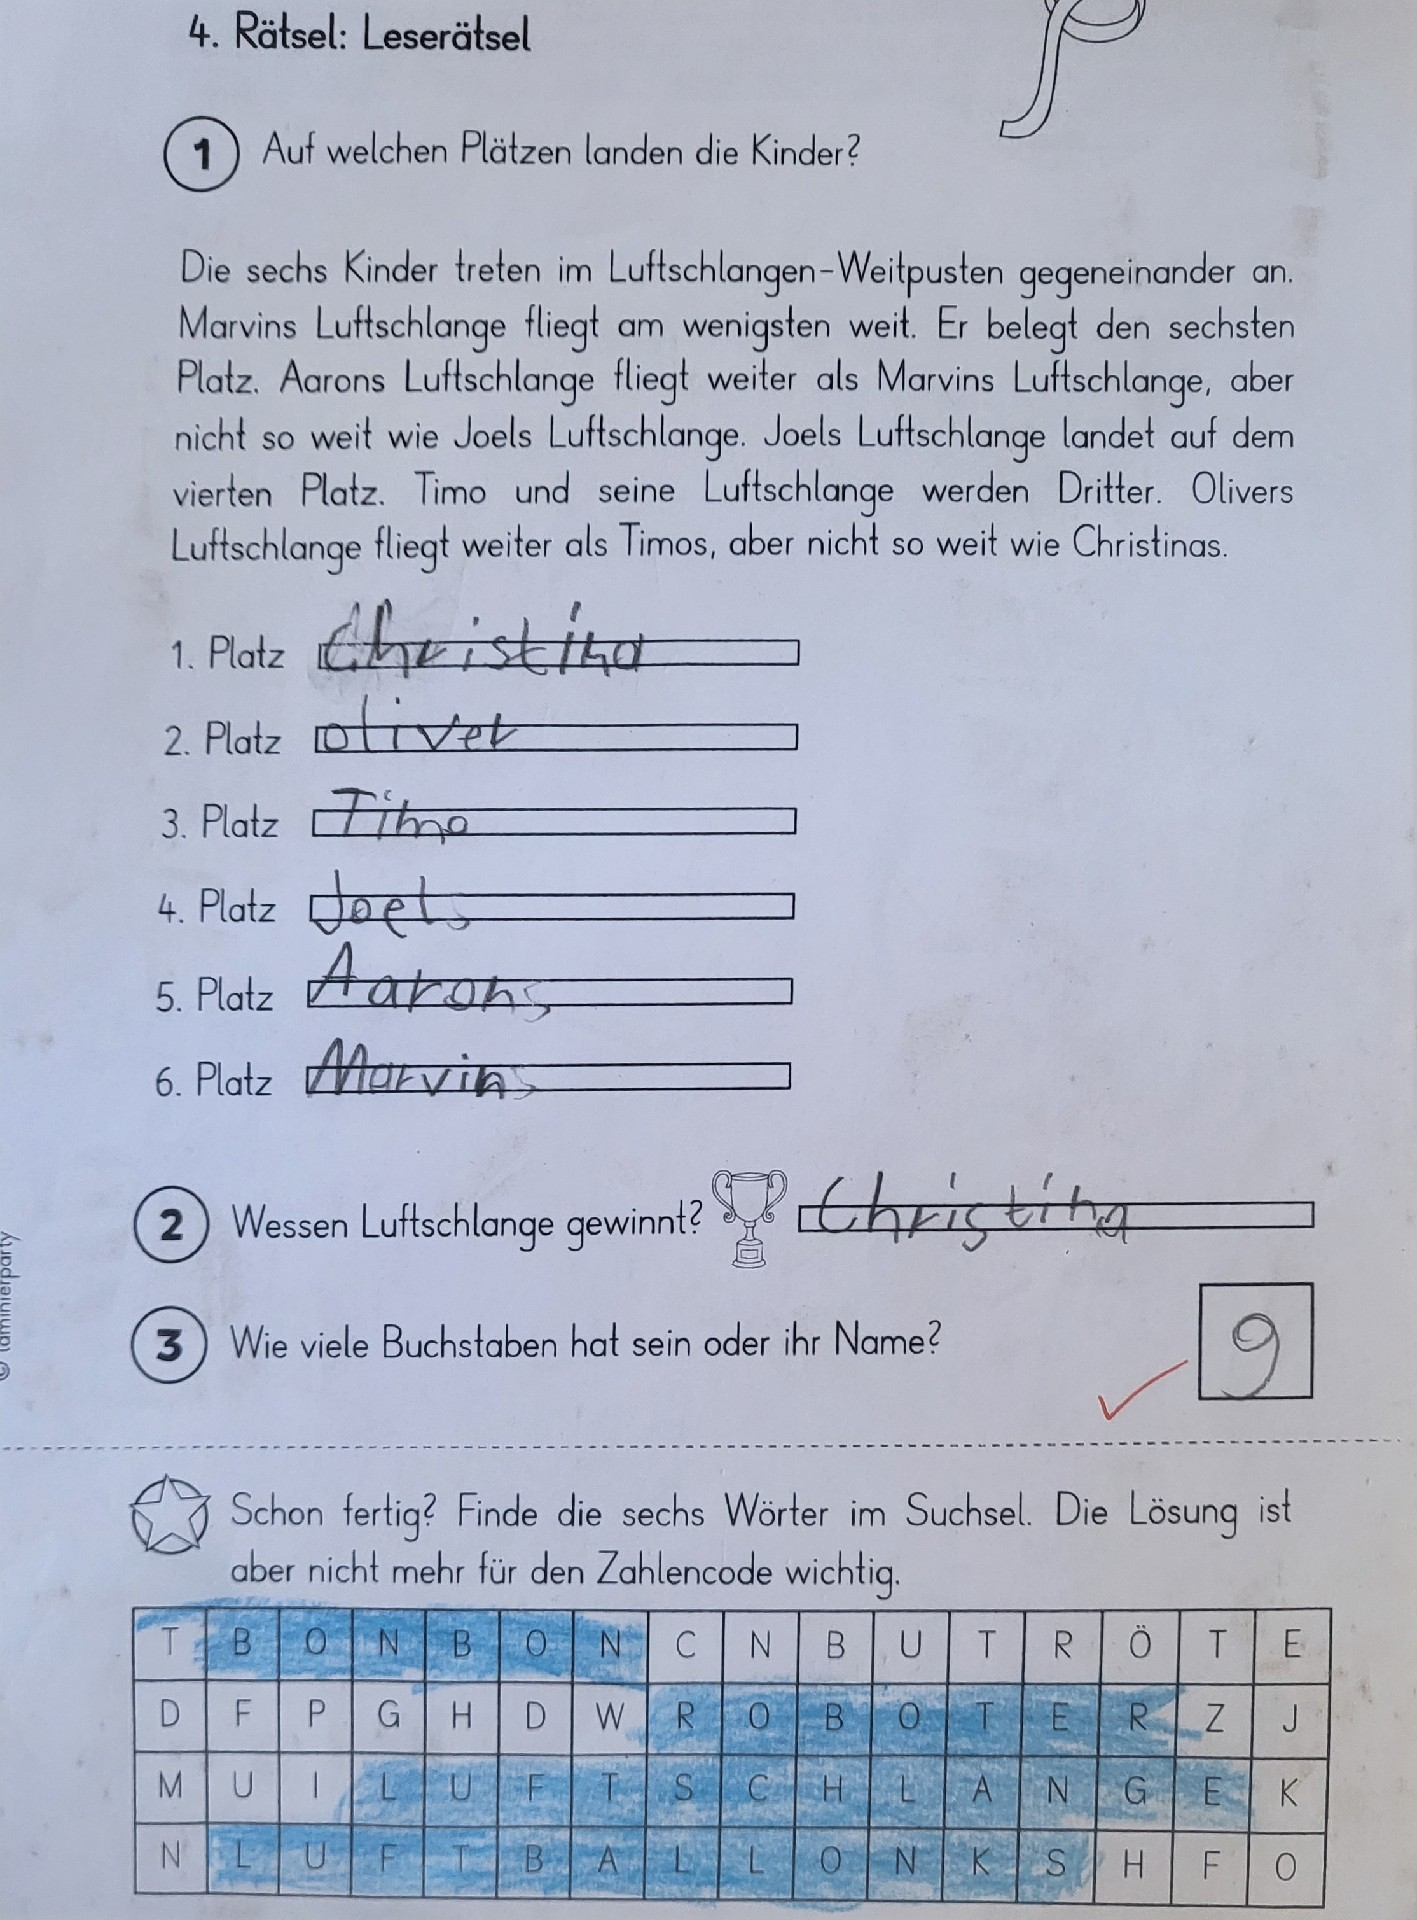 4. Rätsel: Leserätsel
1 Auf welchen Plätzen landen die Kinder?
Die sechs Kinder treten im Luftschlangen-Weitpusten gegeneinander an.
Marvins Luftschlange fliegt am wenigsten weit. Er belegt den sechsten
Platz. Aarons Luftschlange fliegt weiter als Marvins Luftschlange, aber
nicht so weit wie Joels Luftschlange. Joels Luftschlange landet auf dem
vierten Platz. Timo und seine Luftschlange werden Dritter. Olivers
Luftschlange fliegt weiter als Timos, aber nicht so weit wie Christinas.
1. Platz Christina
2. Platz oliver
3. Platz Timo
4. Platz Joels
5. Platz Aarons
6. Platz Marvins
2 Wessen Luftschlange gewinnt? Christina
3 Wie viele Buchstaben hat sein oder ihr Name? 9
© laminierparty
Schon fertig? Finde die sechs Wörter im Suchsel. Die Lösung ist
aber nicht mehr für den Zahlencode wichtig.
T B O N B O N C N B U T R Ö T E
D F P G H D W R O B O T E R Z J
M U I L U F T S C H L A N G E K
N L U F T B A L L O N K S H F O